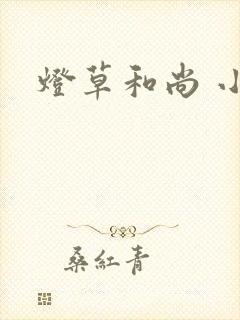 燈草和尚
桑紅青